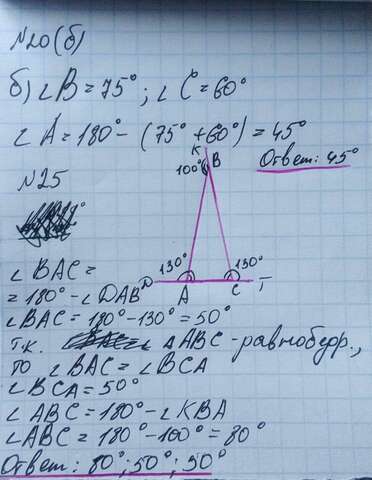 №20(б)
б) ∠B = 75°; ∠C = 60°
∠A = 180° - (75° + 60°) = 45°
Ответ: 45°
№25
K
100° B
130° 130°
D A C T
∠BAC =
= 180° - ∠DAB
∠BAC = 180° - 130° = 50°
т.к. △ABC - равнобедр.,
то ∠BAC = ∠BCA
∠BCA = 50°
∠ABC = 180° - ∠KBA
∠ABC = 180° - 100° = 80°
Ответ: 80°; 50°; 50°